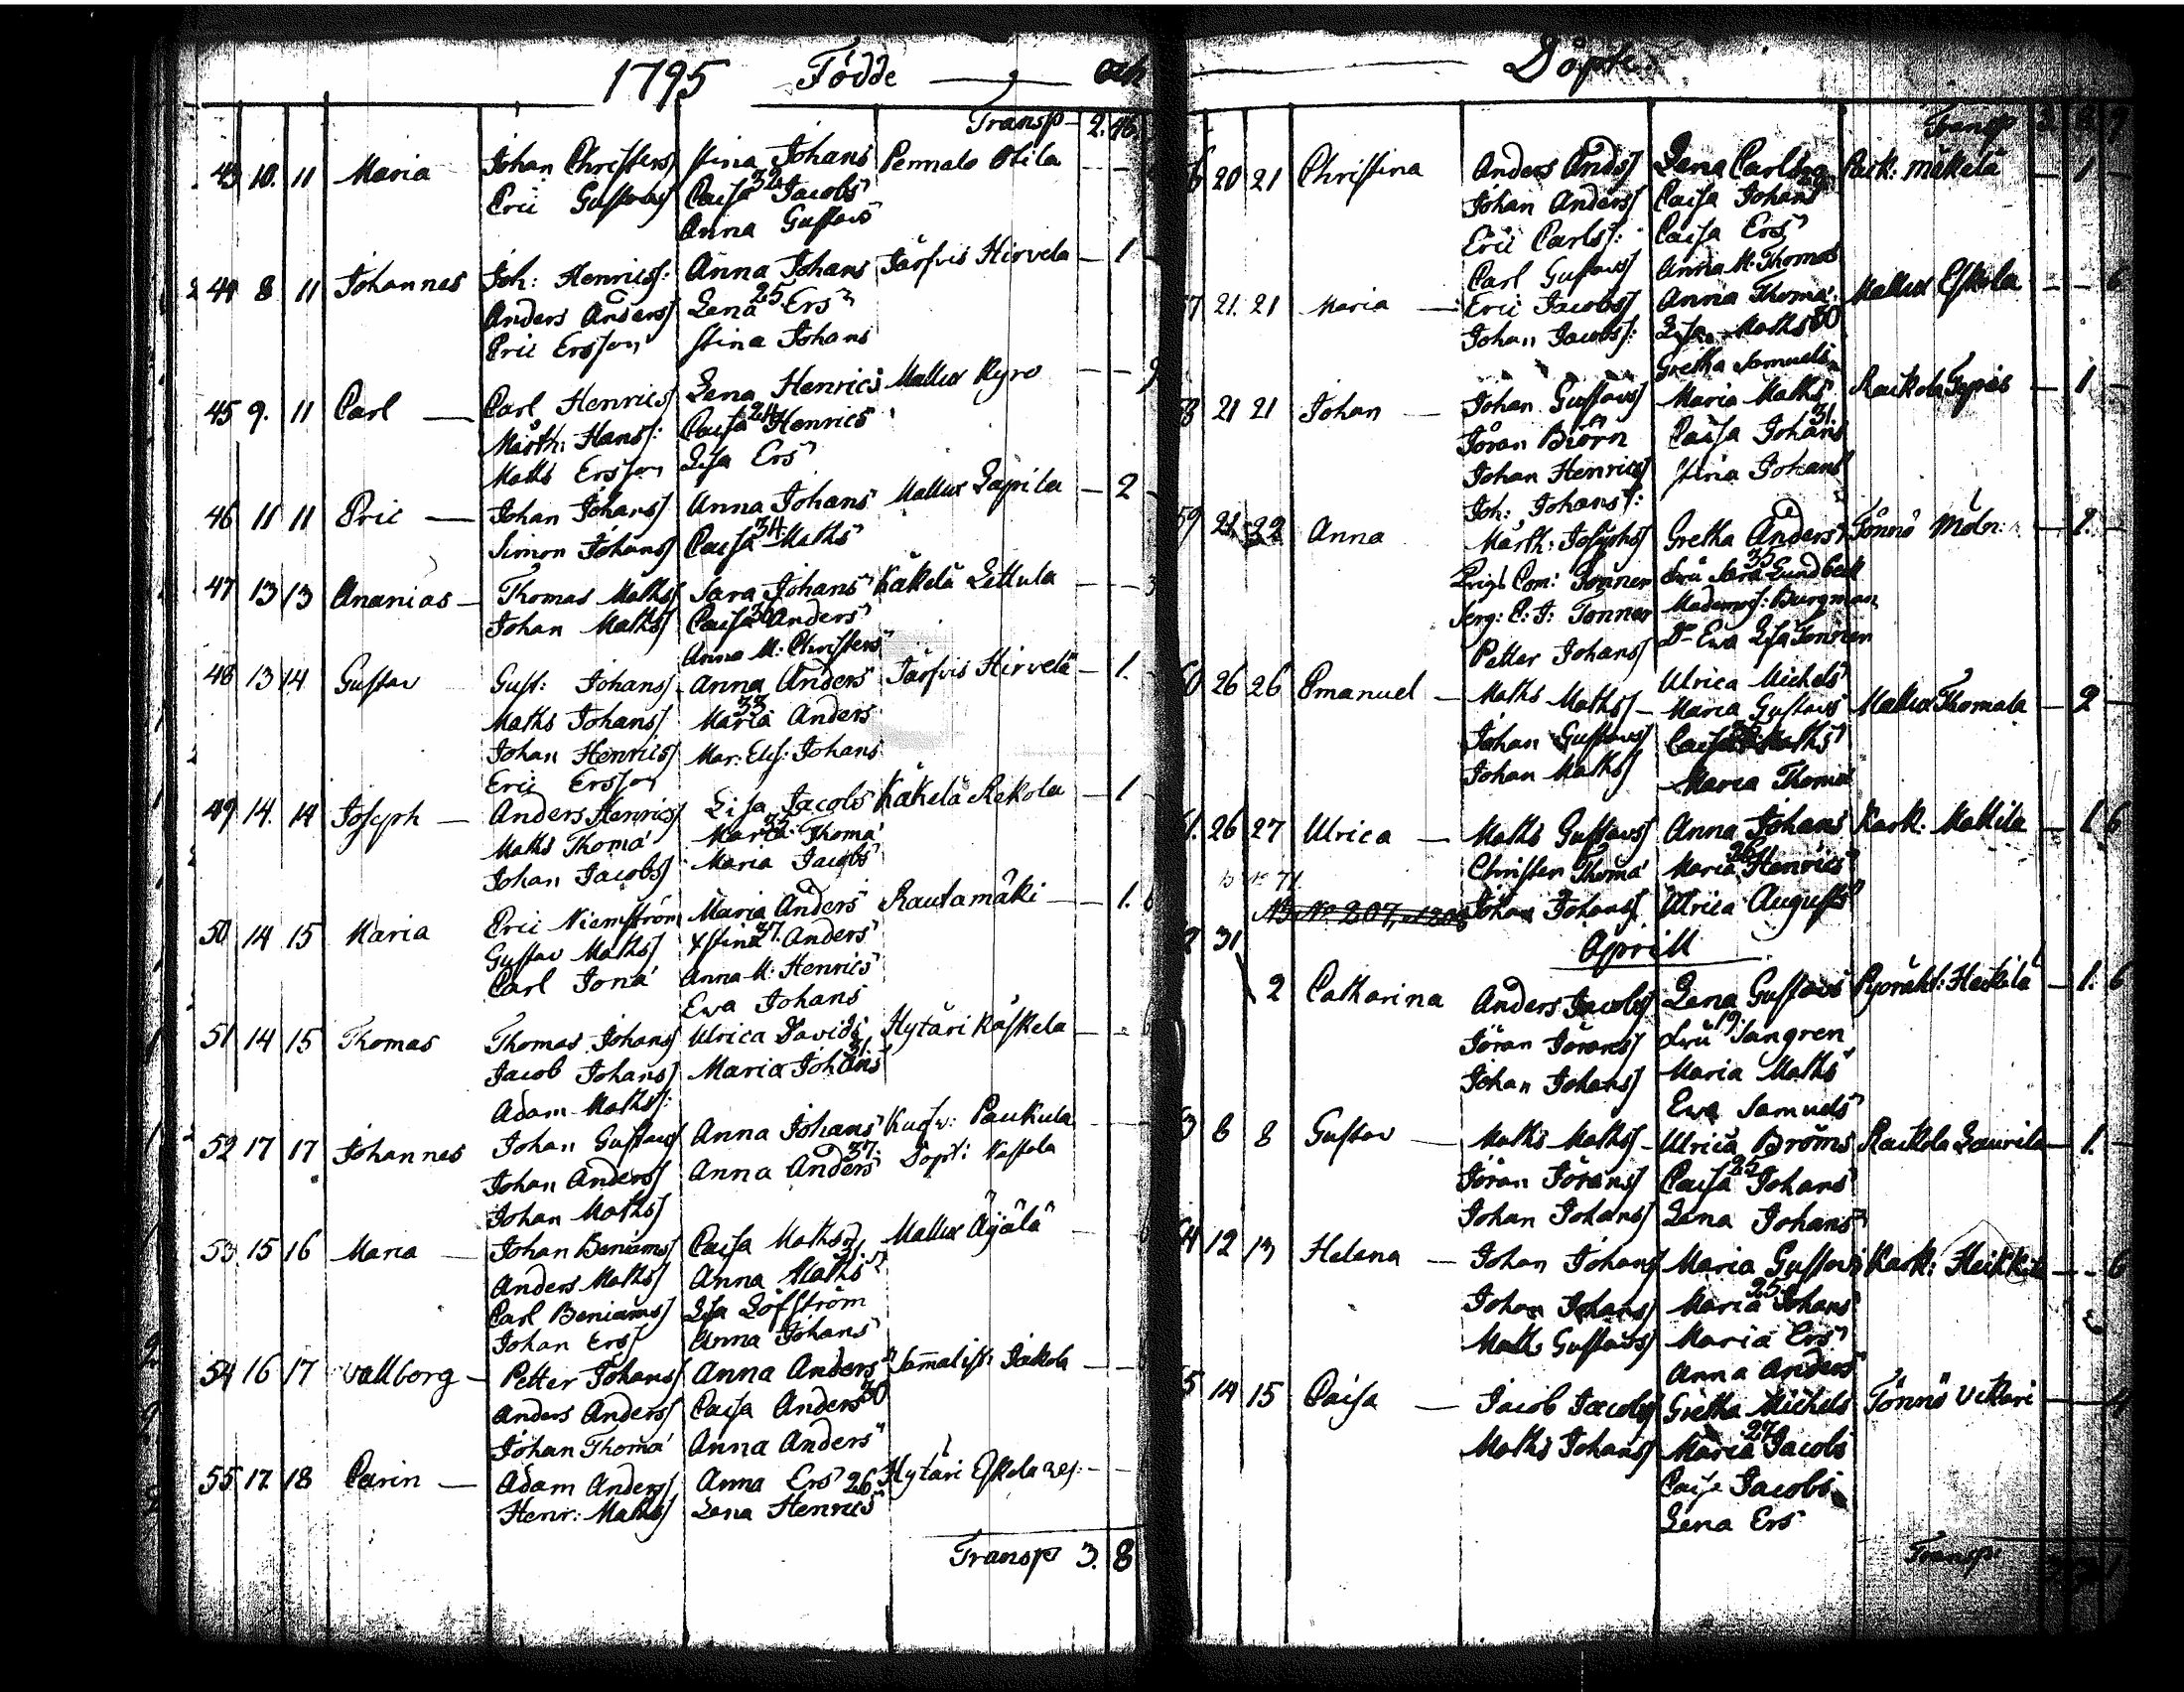 1795 Födde och
Transp 2. 46.
43 10. 11 Maria Johan Christers Stina Johans Pennalo Otila
Eric Gustavs Caisa 32 Jacobs
Anna Gustavs
44 8 11 Johannes Joh: Henrics: Anna Johans Järfvis Hirvela 1
Anders Anders Lena 25 Ers
Eric Ersson Stina Johans
45 9. 11 Carl Carl Henrics Lena Henrics Mallux Kyro
Märth: Hans: Caisa 24 Henrics
Matts Ersson Lisa Ers
46 11 11 Eric Johan Johans Anna Johans Mallux Lapila 2
Simon Johans Caisa 34 Matts
47 13 13 Ananias Thomas Matts Sara Johans Käkelä Lettula
Johan Matts Caisa 30 Anders
Anna M: Christers
48 13 14 Gustav Gust: Johans Anna Anders Järfvis Hirvelä 1.
Matts Johans Maria 33 Anders
Johan Henrics Mar: Elis: Johans
Eric Ersson
49 14. 14 Joseph Anders Henrics Lisa Jacobs Käkelä Rekola 1
Matts Thoma Maria 35 Thoma
Johan Jacobs Maria Jacobs
50 14 15 Maria Eric Niemström Maria Anders Rautamäki 1. 6
Gustav Matts Xstina 37. Anders
Carl Jona Anna M: Henrics
Ewa Johans
51 14 15 Thomas Thomas Johans Ulrica Davids Hytäri Käskela
Jacob Johans Maria 31. Johans
Adam Matts:
52 17 17 Johannes Johan Gustavs Anna Johans Kusw: Paukula
Johan Anders Anna 37. Anders
Johan Matts
53. 15 16 Maria Johan Beniams Caisa Matts Mallux Äyälä
Anders Matts Anna 31. Matts
Carl Beniams Lisa Löfström
Johan Ers Anna Johans
54 16 17 Vallborg Petter Johans Anna Anders Sammalist: Jakola
Anders Anders Caisa Anders 30
Johan Thoma Anna Anders
55 17. 18 Carin Adam Anders Anna Ers 26 Hytäri Eskola
Henr: Matts Lena Henrics
Transp 3. 8
Döpte.
Transp
20 21 Christina Anders Ands Lena Carls Kark: Mäkelä 1
Johan Anders Caisa Johans
Eric Carls: Caisa Ers
Carl Gustavs Anna M: Thomas
21. 21 Maria Eric Jacobs Anna Thoma Mallux Eskola 6
Johan Jacobs: Lisa Matts 30
Gretha Samuels
21 21 Johan Johan Gustavs Maria Matts Raikola 1
Jöran Biörn Caisa 31. Johans
Johan Henrics Stina Johans
Joh: Johans:
59 21 22 Anna Märth: Josephs Gretha Anders Tönnö Möln: 2.
Com: Tonner Fru Sara 35 Lundbeck
Serg: C: J: Tonner Madems: Burgman
Petter Johans Do Ewa Lisa Tonner
Ulrica Michels
60 26 26 Emanuel Matts Matts Maria Gustavs Mallux Thomala 2
Johan Gustavs Caisa Matts
Johan Matts Maria Thoma
61. 26 27 Ulrica Matts Gustavs Anna Johans Kark: Mattila 1 6
Christer Thoma Maria 26 Henrics
No 71
Johan Johans Ulrica Augusts
31 Aprill
2 Catharina Anders Jacobs Lena Gustavs Pyöräkt: Heikilä 1. 6
Jöran Jörans Fru 19 Sangren
Johan Johans Maria Matts
Ewa Samuels
8 8 Gustav Matts Matts Ulrica Broms Raikola Laurila 1.
Jöran Jörans Caisa 25 Johans
Johan Johans Lena Johans
64 12 13 Helena Johan Johans Maria Gustavs Kark: Heikkilä 6
Johan Johans Maria 25 Johans
Matts Gustavs Maria Ers
Anna Anders
14 15 Caisa Jacob Jacobs Gretha Michels Tönnö Vikari 4
Matts Johans Maria 27 Jacobs
Caisa Jacobs
Lena Ers
Transp